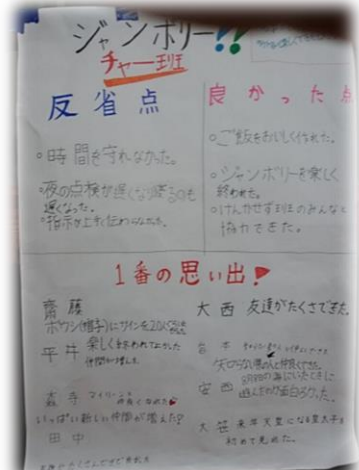 ジャンボリー!!
チャー班
反省点
良かった点
○時間を守れなかった。
○夜の点検が遅くなり寝るのも
遅くなった。
○指示が上手く伝わらなかった。
○ご飯をおいしく作れた。
○ジャンボリーを楽しく
終われた。
○けんかせず班のみんなと
協力できた。
1番の思い出!
齋藤
ボウシ(帽子)にサインを20人
平井 楽しく終われてよかった
仲間が増えた。
森寺
仲良くなれた
いっぱい新しい仲間が増えた?
田中
大西 友達がたくさんできた。
岩本
知らない県の人と仲良くできた。
安西
遊んだのが面白かった。
大笹 来年天皇になる皇太子を
初めて見れた。